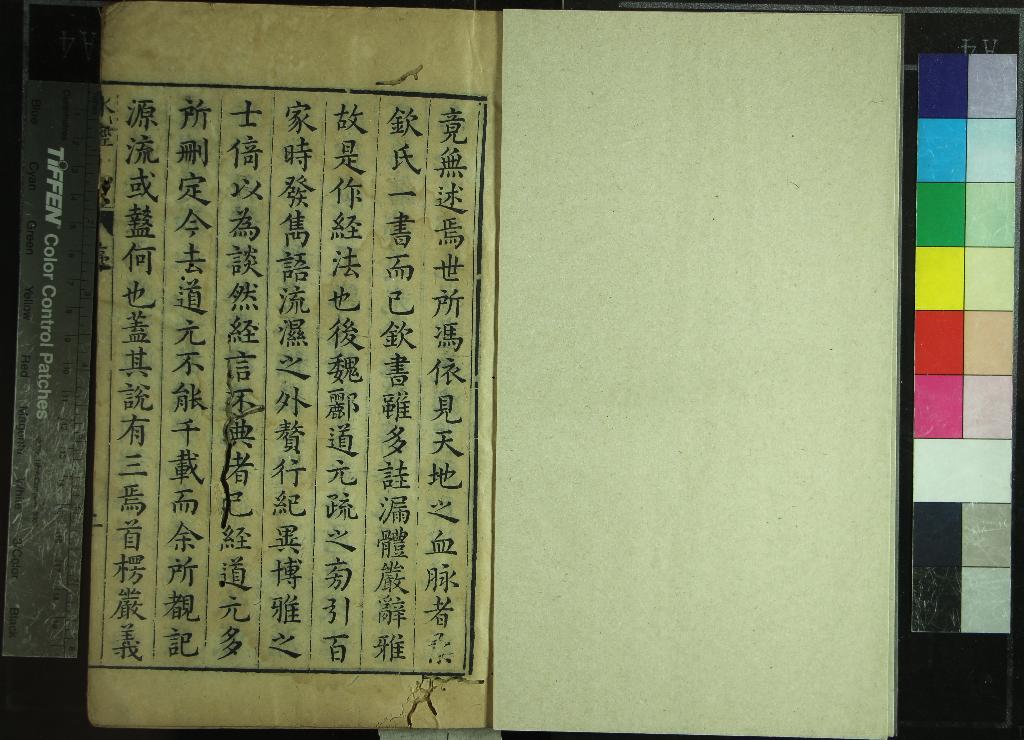 竟無述焉世所馮依見天地之血脉者桑
欽氏一書而已欽書雖多詿漏體嚴辭雅
故是作経法也後魏酈道元疏之旁引百
家時發雋語流濕之外贅行紀異博雅之
士倚以為談然経言不典者已経道元多
所刪定今去道元不能千載而余所覩記
源流或盭何也蓋其說有三焉首楞嚴義
TIFFEN Color Control Patches
Blue
Cyan
Green
Yellow
Red
Magenta
White
3/Color
Black
A4
A4